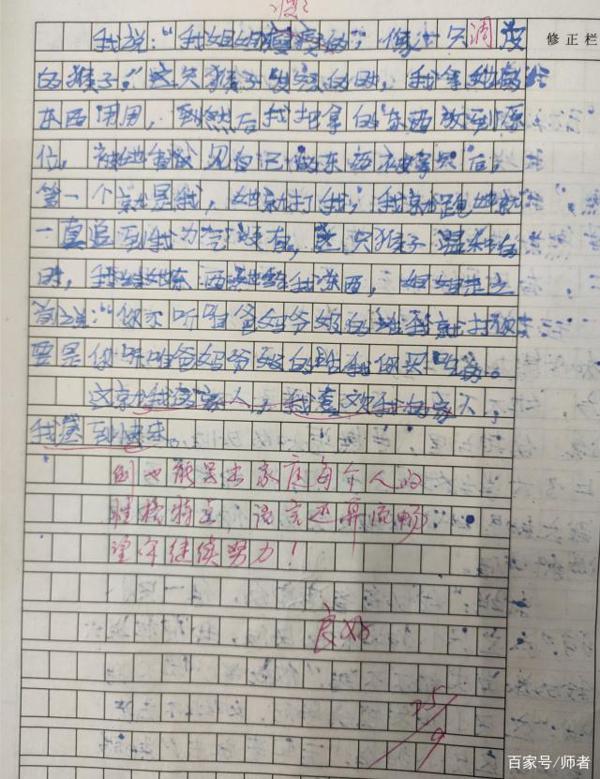 修正栏
我说："我姐姐瘦瘦的，像一只调皮
的猴子。"这只猴子发怒的时，我拿她的
东西用用，到然后我把拿的东西放到原
位，被她发见自己的东西被拿只后，
第一个就是我，她就打我，我就跑她就
一直追到我力气没有，这只猴子温和的
时，我给她东西她给我东西，姐姐走之
前说："你不听爸妈爷奶的话我就打你
要是你听爸妈爷奶的话我你买吃的。
这就我家人，我喜欢我的家人，
我感到快乐。
倒也能写出家庭每个人的
性格特点，语言还算流畅。
望今继续努力！
良好
25/9
百家号/师者